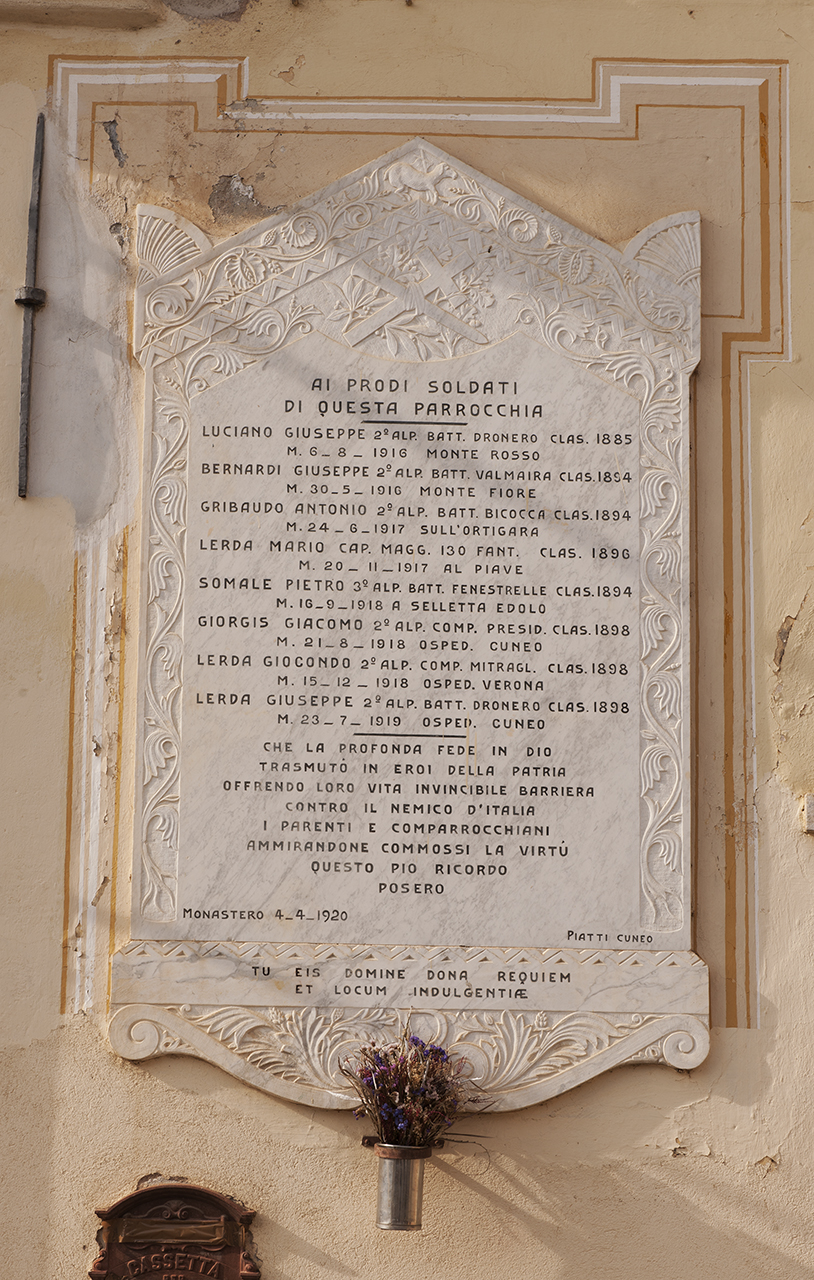 AI PRODI SOLDATI
DI QUESTA PARROCCHIA
LUCIANO GIUSEPPE 2º ALP. BATT. DRONERO CLAS. 1885
M. 6_8_1916 MONTE ROSSO
BERNARDI GIUSEPPE 2º ALP. BATT. VALMAIRA CLAS. 1894
M. 30_5_1916 MONTE FIORE
GRIBAUDO ANTONIO 2º ALP. BATT. BICOCCA CLAS. 1894
M. 24_6_1917 SULL'ORTIGARA
LERDA MARIO CAP. MAGG. 130 FANT. CLAS. 1896
M. 20_11_1917 AL PIAVE
SOMALE PIETRO 3º ALP. BATT. FENESTRELLE CLAS. 1894
M. 16_9_1918 A SELLETTA EDOLO
GIORGIS GIACOMO 2º ALP. COMP. PRESID. CLAS. 1898
M. 21_8_1918 OSPED. CUNEO
LERDA GIOCONDO 2º ALP. COMP. MITRAGL. CLAS. 1898
M. 15_12_1918 OSPED. VERONA
LERDA GIUSEPPE 2º ALP. BATT. DRONERO CLAS. 1898
M. 23_7_1919 OSPED. CUNEO
CHE LA PROFONDA FEDE IN DIO
TRASMUTÒ IN EROI DELLA PATRIA
OFFRENDO LORO VITA INVINCIBILE BARRIERA
CONTRO IL NEMICO D'ITALIA
I PARENTI E COMPARROCCHIANI
AMMIRANDONE COMMOSSI LA VIRTÙ
QUESTO PIO RICORDO
POSERO
MONASTERO 4_4_1920
PIATTI CUNEO
TU EIS DOMINE DONA REQUIEM
ET LOCUM INDULGENTIÆ
CASSETTA